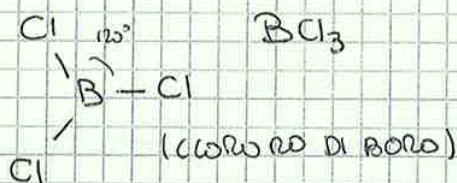 Cl 120° BCl₃
B - Cl
Cl (CLORURO DI BORO)